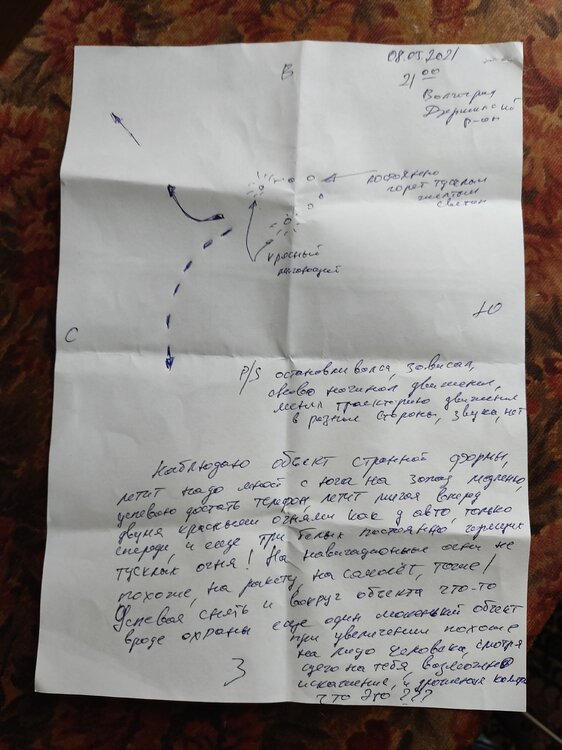 08.05.2021
21 00
Волгоград
Дзержинский
р-он
В
постоянно
горят тусклым
желтым
светом
красный
мигающий
Ю
С
P/S останавливался, зависал,
снова начинал движение,
менял траекторию движения
в разные стороны, звука, нет
Наблюдаю объект странной формы,
летит надо мной с юга на запад медленно,
успеваю достать телефон, летит мигая вперед
двумя красными огнями как у авто, только
спереди, и еще три белых постоянно горящих
тусклых огня! На навигационные огни не
похоже, на ракету, на самолёт, тоже!
Успевая снять и вокруг объекта что-то
вроде охраны еще один маленький объект
при увеличении похоже
на лицо человека, смотря
щего на тебя, возможно
искажение, и дрожания
что это ???
З